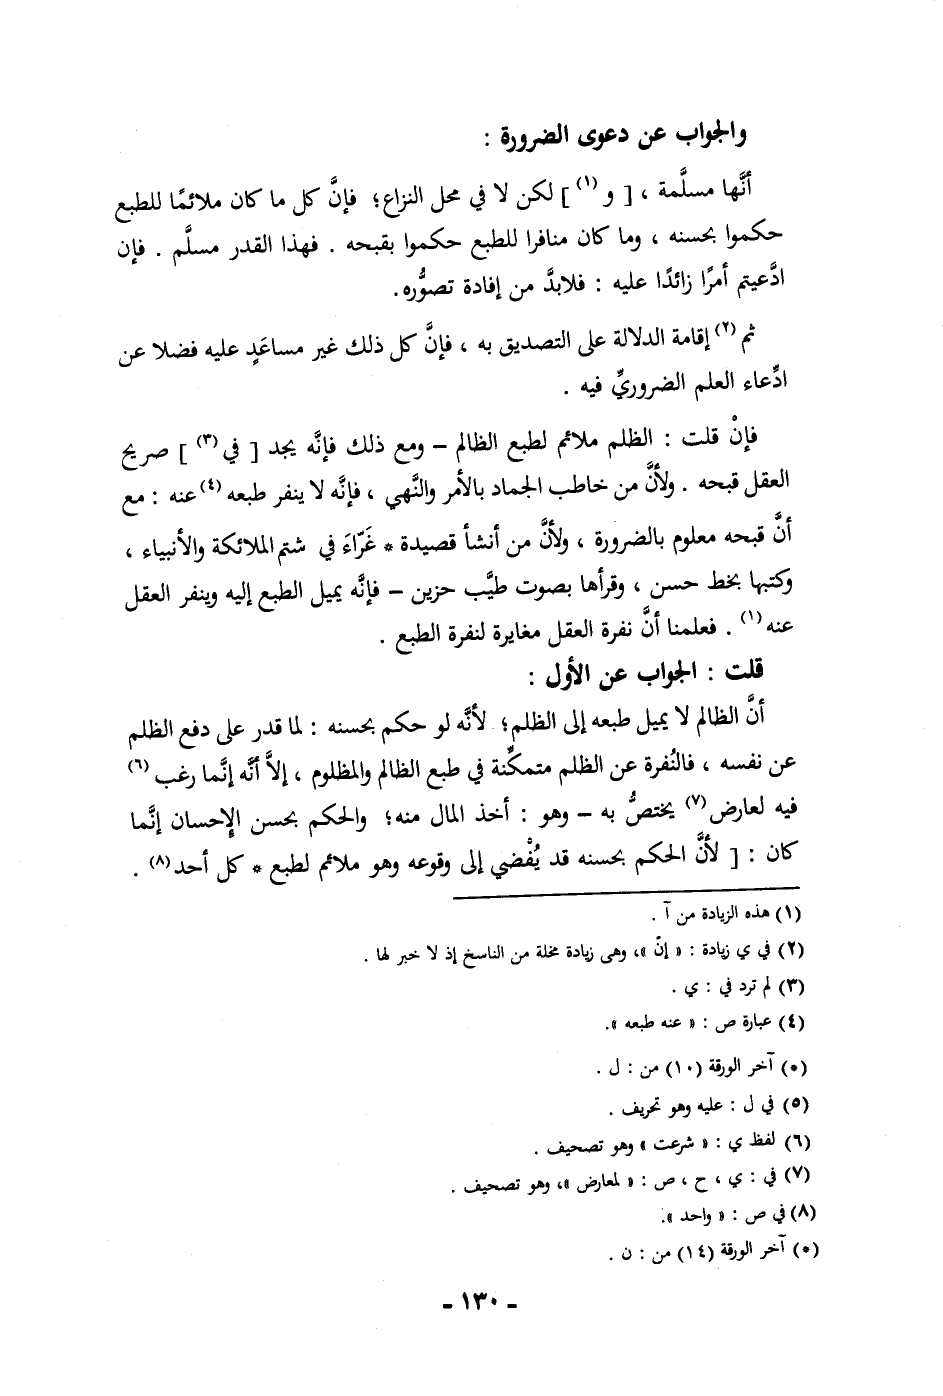 والجواب عن دعوى الضرورة :
أنَّها مسلَّمة ، [ و (١) ] لكن لا في محل النزاع؛ فإنَّ كل ما كان ملائمًا للطبع
حكموا بحسنه ، وما كان منافرا للطبع حكموا بقبحه . فهذا القدر مسلَّم . فإن
ادَّعيتم أمرًا زائدًا عليه : فلابدَّ من إفادة تصوُّره.
ثم (٢) إقامة الدلالة على التصديق به ، فإنَّ كل ذلك غير مساعَدٍ عليه فضلا عن
ادِّعاء العلم الضروريِّ فيه .
فإنْ قلت : الظلم ملائم لطبع الظالم – ومع ذلك فإنَّه يجد [ في (٣) ] صريح
العقل قبحه . ولأنَّ من خاطب الجماد بالأمر والنَّهي ، فإنَّه لا ينفر طبعه (٤) عنه : مع
أنَّ قبحه معلوم بالضرورة ، ولأنَّ من أنشأ قصيدة * غَرّاءَ في شتم الملائكة والأنبياء ،
وكتبها بخط حسن ، وقرأها بصوت طيَّب حزين – فإنَّه يميل الطبع إليه وينفر العقل
عنه (١) . فعلمنا أنَّ نفرة العقل مغايرة لنفرة الطبع .
قلت : الجواب عن الأول :
أنَّ الظالم لا يميل طبعه إلى الظلم؛ لأنَّه لو حكم بحسنه : لما قدر على دفع الظلم
عن نفسه ، فالنُفرة عن الظلم متمكِّنة في طبع الظالم والمظلوم ، إلاَّ أنَّه إنَّما رغب (٦)
فيه لعارض (٧) يختصُّ به – وهو : أخذ المال منه؛ والحكم بحسن الإحسان إنَّما
كان : [ لأنَّ الحكم بحسنه قد يُفْضي إلى وقوعه وهو ملائم لطبع * كل أحد (٨) .
(١) هذه الزيادة من آ .
(٢) في ي زيادة : « إنّ »، وهى زيادة مخلة من الناسخ إذ لا خبر لها .
(٣) لم ترد في : ي .
(٤) عبارة ص : « عنه طبعه ».
(*) آخر الورقة (١٠) من : ل .
(٥) في ل : عليه وهو تحريف .
(٦) لفظ ي : « شرعت » وهو تصحيف .
(٧) في : ي ، ح ، ص : « لمعارض »، وهو تصحيف .
(٨) في ص : « واحد ».
(*) آخر الورقة (١٤) من : ن .
- ١٣٠ -